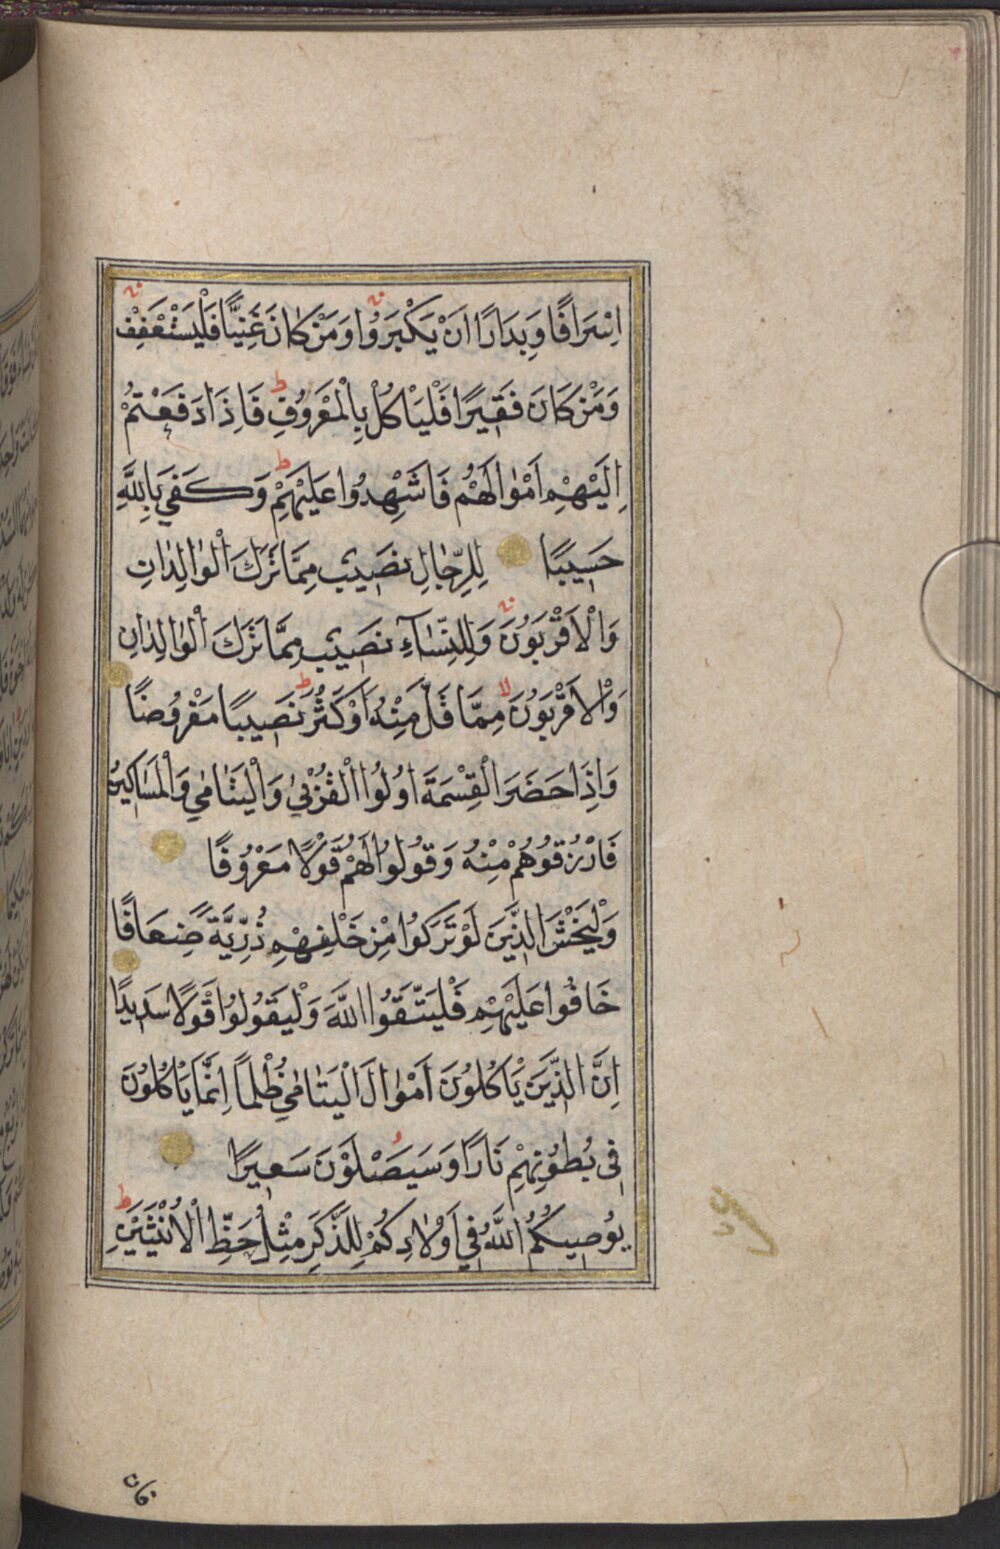 اِسْرَافًا وَبِدَارًا اَنْ يَكْبَرُوا وَمَنْ كَانَ غَنِيًّا فَلْيَسْتَعْفِفْ
وَمَنْ كَانَ فَقِيرًا فَلْيَاْكُلْ بِالْمَعْرُوفِ فَاِذَا دَفَعْتُمْ
اِلَيْهِمْ اَمْوَالَهُمْ فَاَشْهِدُوا عَلَيْهِمْ وَكَفٰي بِاللّٰهِ
حَسِيبًا لِلرِّجَالِ نَصِيبٌ مِمَّا تَرَكَ الْوَالِدَانِ
وَالْاَقْرَبُونَ وَلِلنِّسَآءِ نَصِيبٌ مِمَّا تَرَكَ الْوَالِدَانِ
وَالْاَقْرَبُونَ مِمَّا قَلَّ مِنْهُ اَوْ كَثُرَ نَصِيبًا مَفْرُوضًا
وَاِذَا حَضَرَ الْقِسْمَةَ اُولُوا الْقُرْبٰي وَالْيَتَامٰي وَالْمَسَاكِينُ
فَارْزُقُوهُمْ مِنْهُ وَقُولُوا لَهُمْ قَوْلًا مَعْرُوفًا
وَلْيَخْشَ الَّذِينَ لَوْ تَرَكُوا مِنْ خَلْفِهِمْ ذُرِّيَّةً ضِعَافًا
خَافُوا عَلَيْهِمْ فَلْيَتَّقُوا اللّٰهَ وَلْيَقُولُوا قَوْلًا سَدِيدًا
اِنَّ الَّذِينَ يَاْكُلُونَ اَمْوَالَ الْيَتَامٰي ظُلْمًا اِنَّمَا يَاْكُلُونَ
فِي بُطُونِهِمْ نَارًا وَسَيَصْلَوْنَ سَعِيرًا
يُوصِيكُمُ اللّٰهُ فِي اَوْلَادِكُمْ لِلذَّكَرِ مِثْلُ حَظِّ الْاُنْثَيَيْنِ